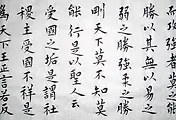 勝以其無以易之
弱之勝強柔之勝
剛天下莫不知莫
能行是以聖人云
受國之垢是謂社
稷主受國不祥是
為天下王正言若反